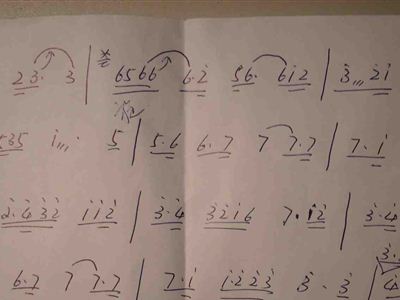 23· 3 | 6566 6·2 56· 612 | 3,,, 21
535 1,,,· 5 | 5·6 6·7 7 7·7 | 7·1
2·432 112 | 3·4 3216 7·12 | 3·4
6·7 7 7·7 | 7·1 1·223 3·3 | 4